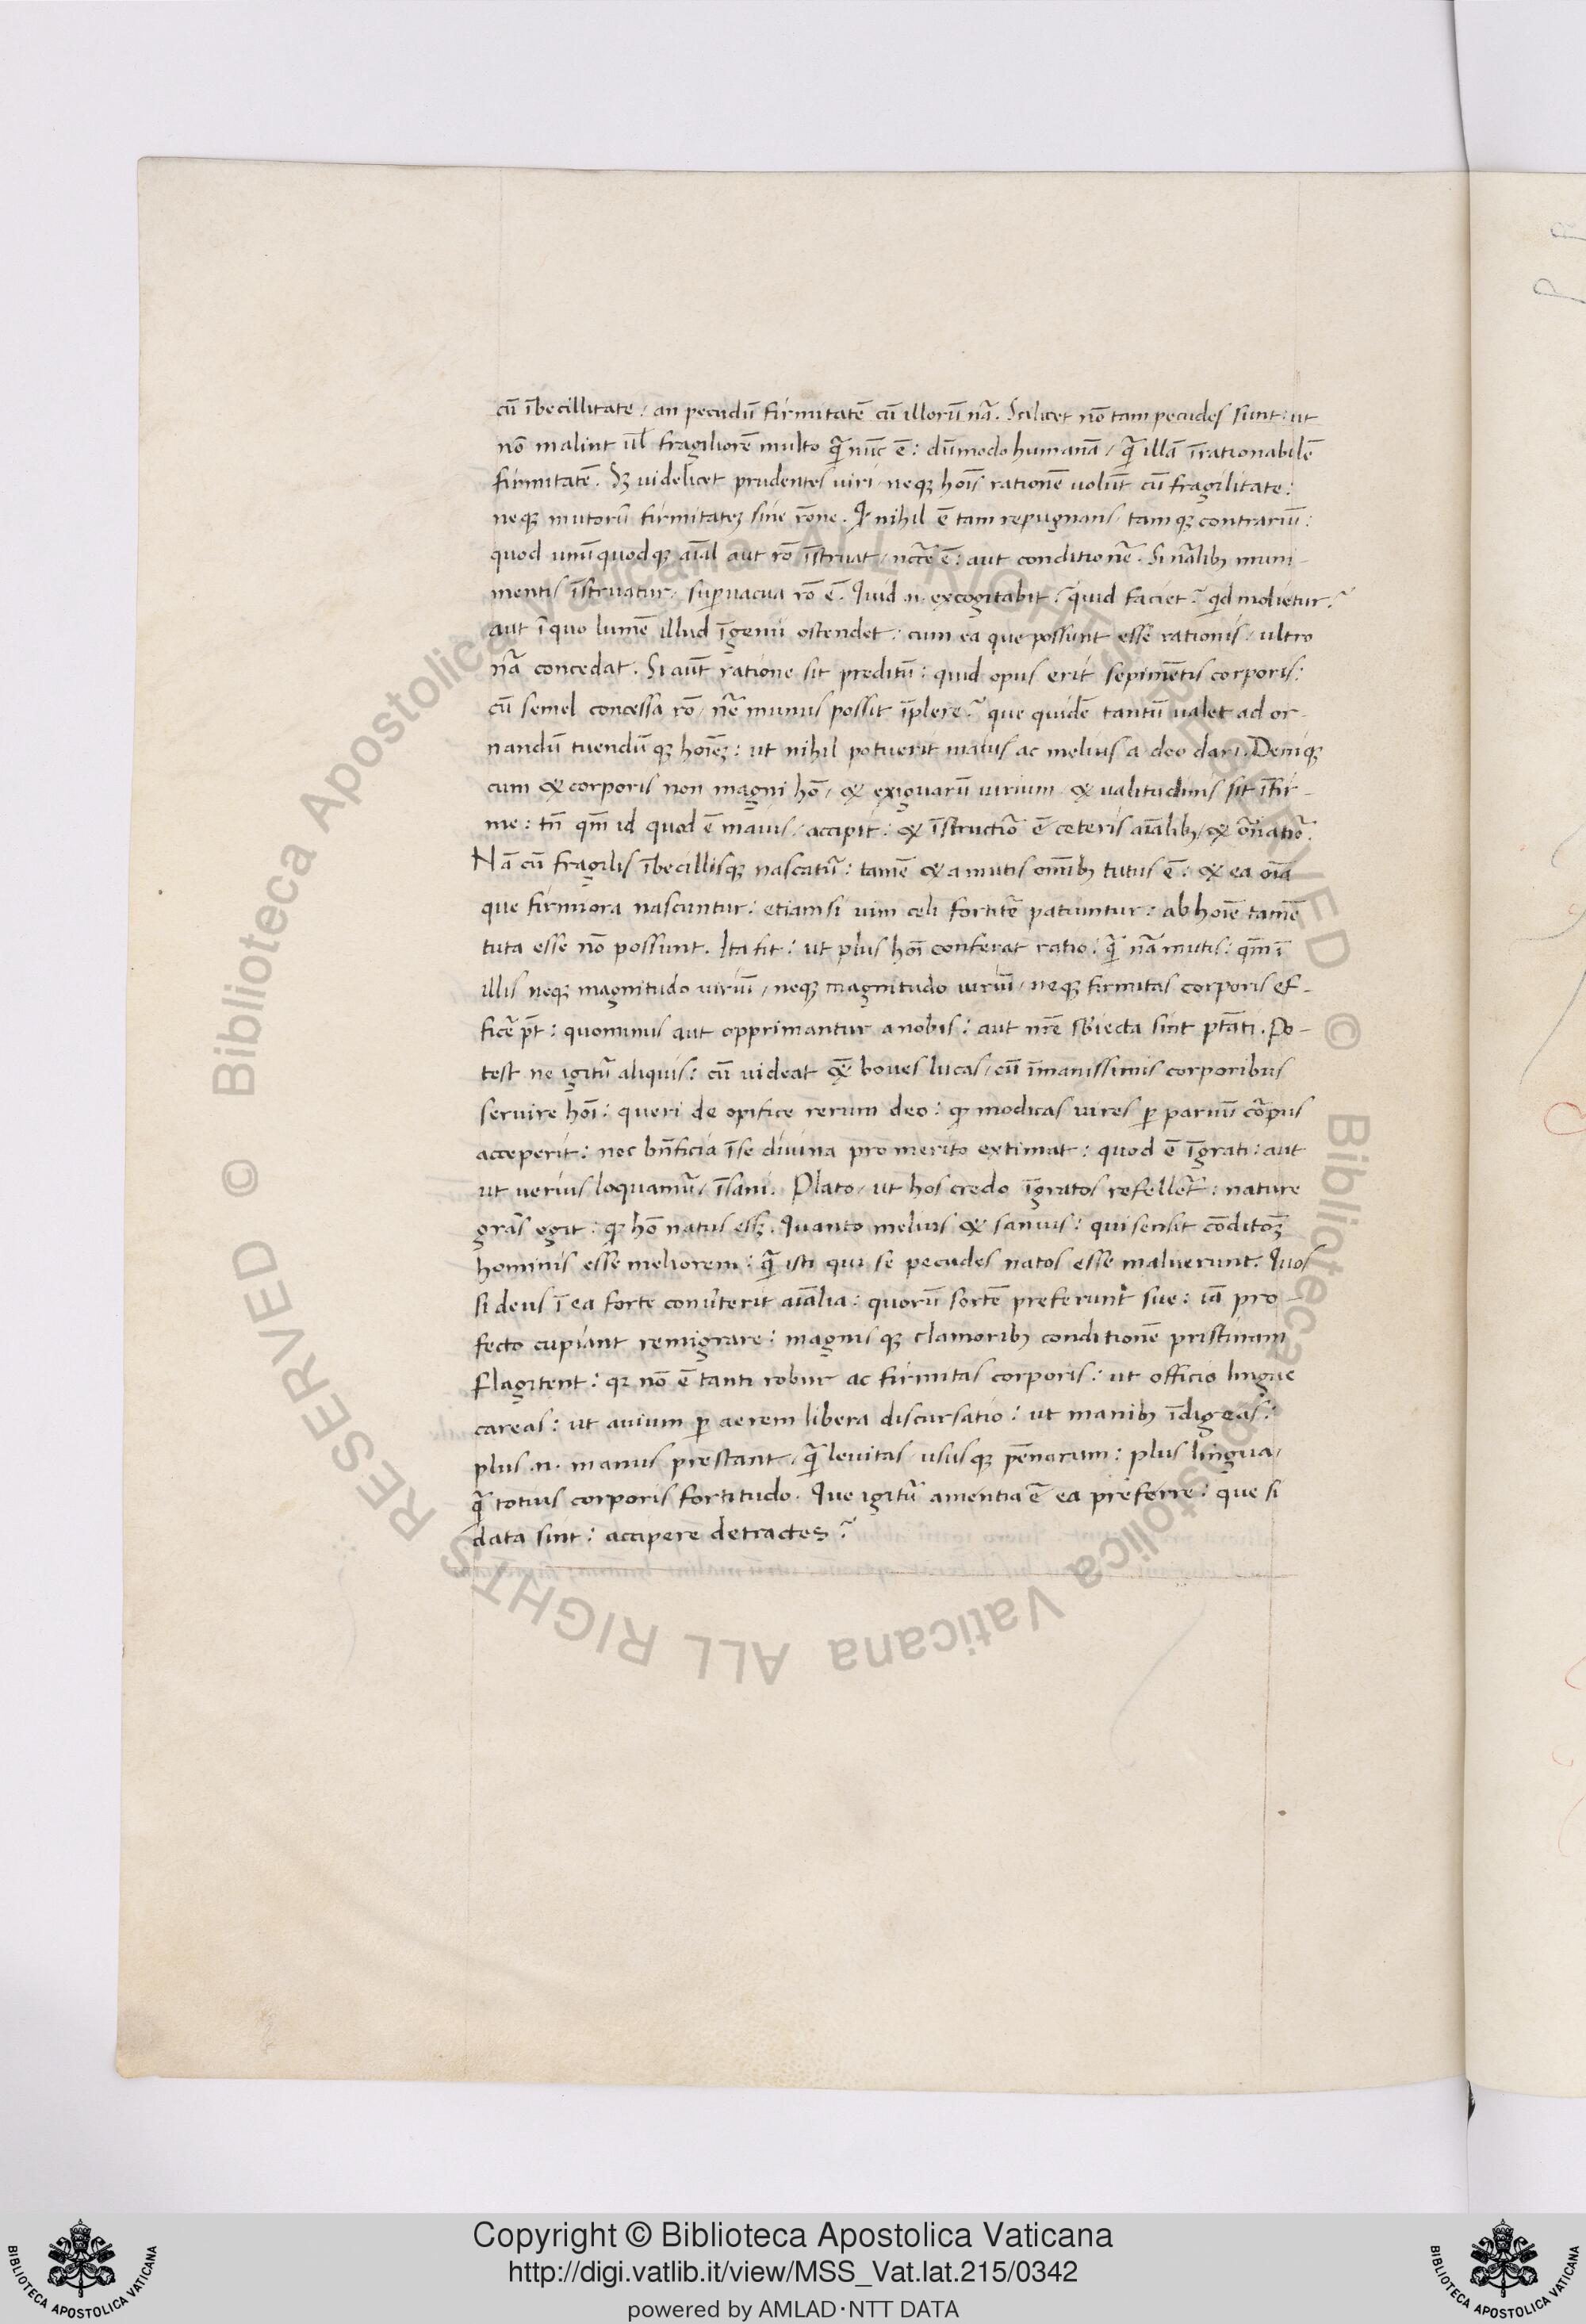 cū ībecillitate / an pecudū firmitatē cū illorū nā. Scilicet nō tam pecudes sunt: ut
nō malint ul̄ fragiliorē multo q̄ nūc ē: dūmodo humanā / q̄ illā īrationabilē
firmitatē. Sꝫ uidelicet prudentes uiri neqꝫ hoīs rationē uolūt cū fragilitate:
neqꝫ mutorū firmitateꝫ sine rōne. Qꝫ nihil ē tam repugnans / tamqꝫ contrariū:
quod unūquodqꝫ aīal aut rō īstruat / nctē ē: aut conditio nā. Si nālibꝫ muni-
mentis īstruatur / supuacua rō ē. Quid .n. excogitabit? quid faciet? qd molietur?
aut ī quo lumē illud īgenii ostendet: cum ea que possunt esse rationis / ultro
nā concedat. Si aūt ratione sit preditū: quid opus erit sepimētis corporis:
cū semel concessa rō / nē munus possit īplere? que quidē tantū ualet ad or-
nandū tuendūqꝫ hoīeꝫ: ut nihil potuerit maius ac melius a deo dari. Deniqꝫ
cum & corporis non magni hō / & exiguarū uirium / & ualitudinis sit īfir-
me: tn̄ qm̄ id quod ē maius / accipit: & īstructiō ē ceteris aīalibꝫ / & ornatiō.
Nā cū fragilis ībecillisqꝫ nascatur̄: tamē & a mutis omībꝫ tutus ē: & ea oīa
que firmiora nascuntur: etiam si uim celi fortitē patiuntur: ab hoīe tamē
tuta esse nō possunt. Ita fit: ut plus hoī conferat ratio: q̄ nā mutis: qm̄ ī
illis neqꝫ magnitudo uiriū / neqꝫ magnitudo uiriū / neqꝫ firmitas corporis ef-
ficē pt̄: quominus aut opprimantur a nobis: aut nr̄e sbiecta sint ptāti. Po-
test ne igitū aliquis: cū uideat & boues lucas / cū īmanissimis corporibus
seruire hoī: queri de opifice rerum deo: qꝫ modicas uires p paruū corpus
acceperit: nec bn̄ficia ī se diuina pro merito extimat: quod ē īgrati: aut
ut uerius loquamū / īsani. Plato / ut hos credo īgratos refelleret: nature
grās egit: qꝫ hō natus essꝫ. Quanto melius & sanius: qui sensit cōditoꝫ
hominis esse meliorem: q̄ isti qui se pecudes natos esse maluerunt. Quos
si deus ī ea forte conūterit aīalia: quorū sortē preferunt sue: iā pro-
fecto cupiant remigrare: magnisqꝫ clamoribꝫ conditionē pristinam
flagitent: qꝫ nō ē tanti robur ac firmitas corporis: ut officio lingue
careas: ut auium p aerem libera discursatio: ut manibꝫ īdigeas:
plus .n. manus prestant / q̄ leuitas / ususqꝫ pēnarum: plus lingua /
q̄ totius corporis fortitudo. Que igitū amentia ē ea preferre: que si
data sint: accipere detractes?
Copyright © Biblioteca Apostolica Vaticana
http://digi.vatlib.it/view/MSS_Vat.lat.215/0342
powered by AMLAD·NTT DATA
BIBLIOTECA APOSTOLICA VATICANA
BIBLIOTECA APOSTOLICA VATICANA
© Biblioteca Apostolica Vaticana ALL RIGHTS RESERVED © Biblioteca Apostolica Vaticana ALL RIGHTS RESERVED